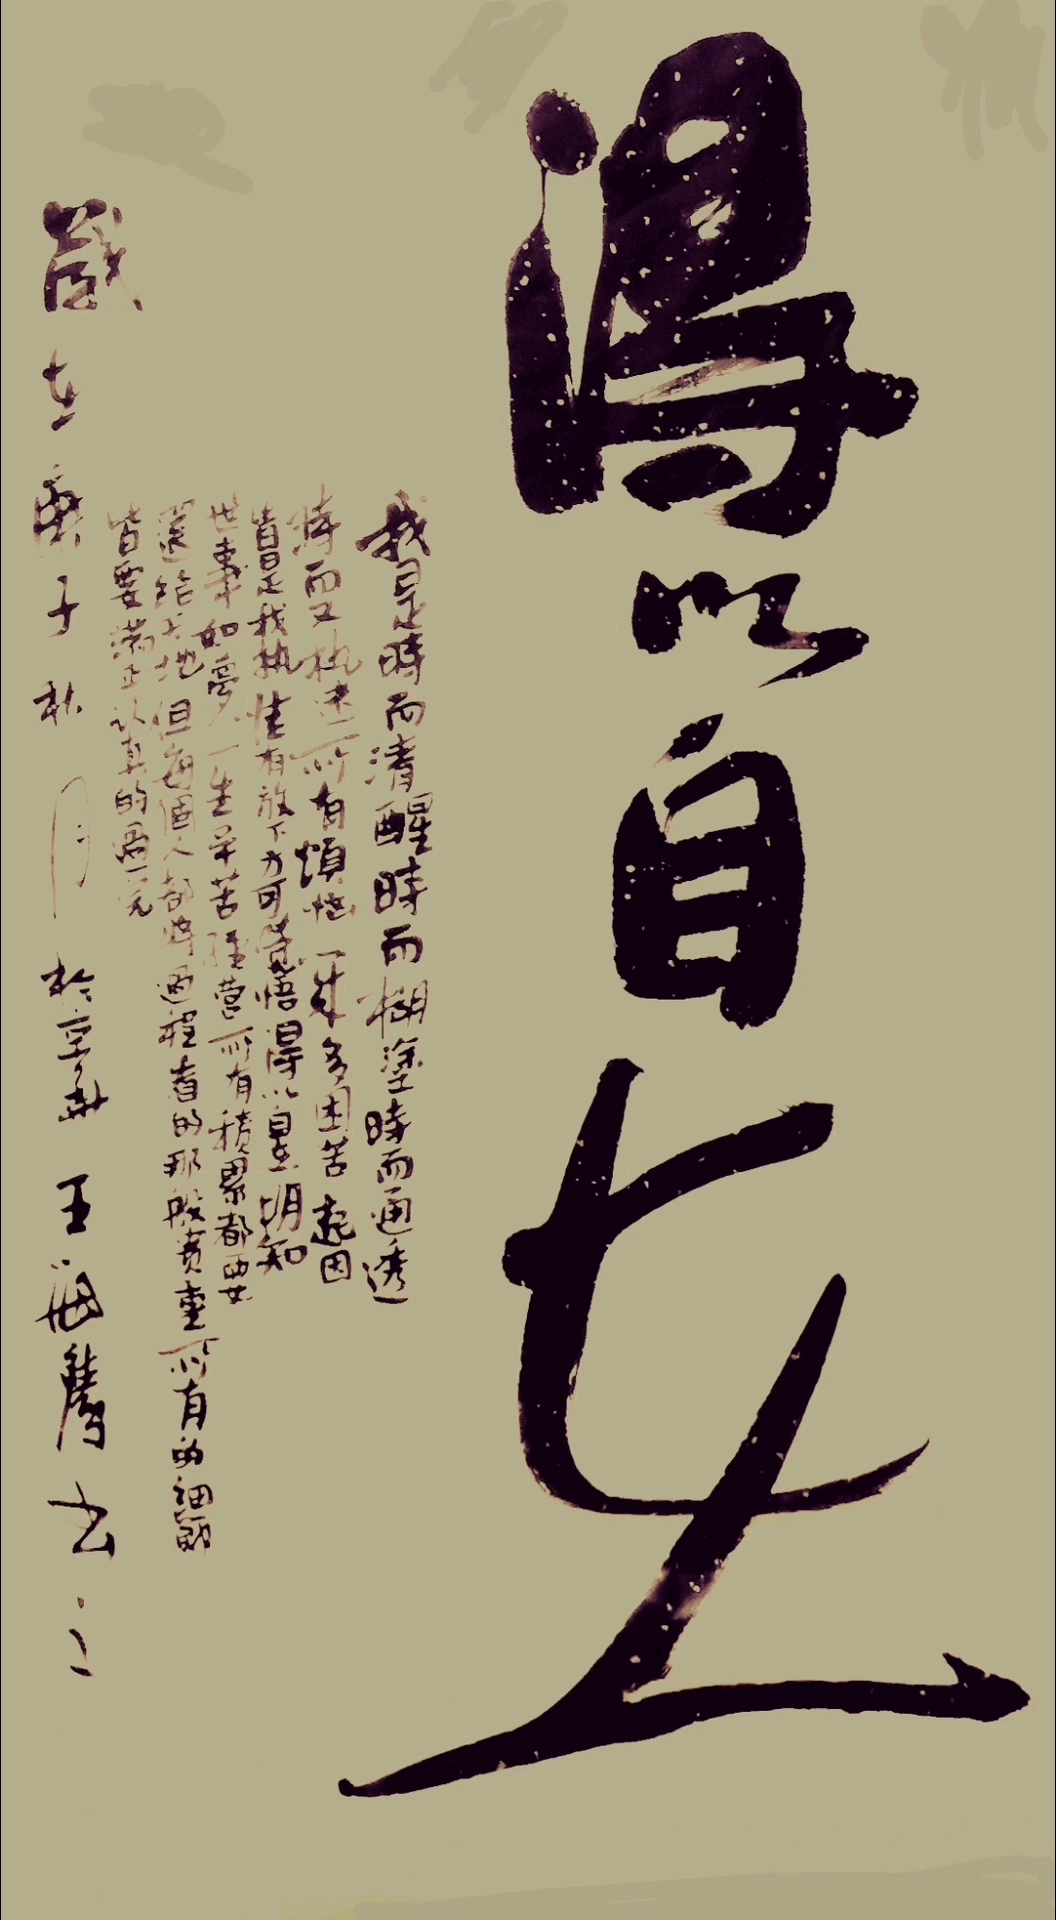 得以自在
我是時而清醒時而糊塗時而通透
時而又执迷所有煩惱一年多困苦起因
皆是我执惟有放下方可覺悟得以自在明知
世事如夢一生辛苦經营所有積累都要
還给天地但每個人都將過程看的那般贵重所有的細節
皆要滿正认真的過完
歲在庚子秋月於京華王 書之